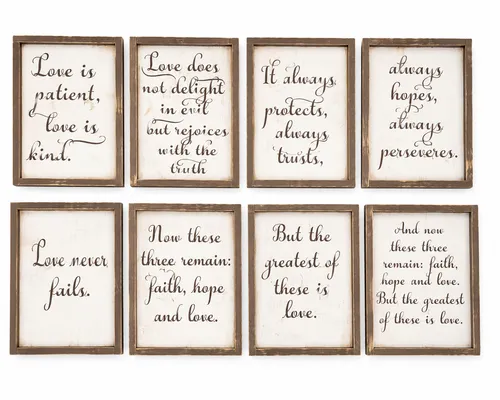 Love is
patient,
love is
kind.
Love does
not delight
in evil
but rejoices
with the
truth
It always
protects,
always
trusts,
always
hopes,
always
perseveres.
Love never
fails.
Now these
three remain:
faith, hope
and love.
But the
greatest of
these is
love.
And now
these three
remain: faith,
hope and love.
But the greatest
of these is love.